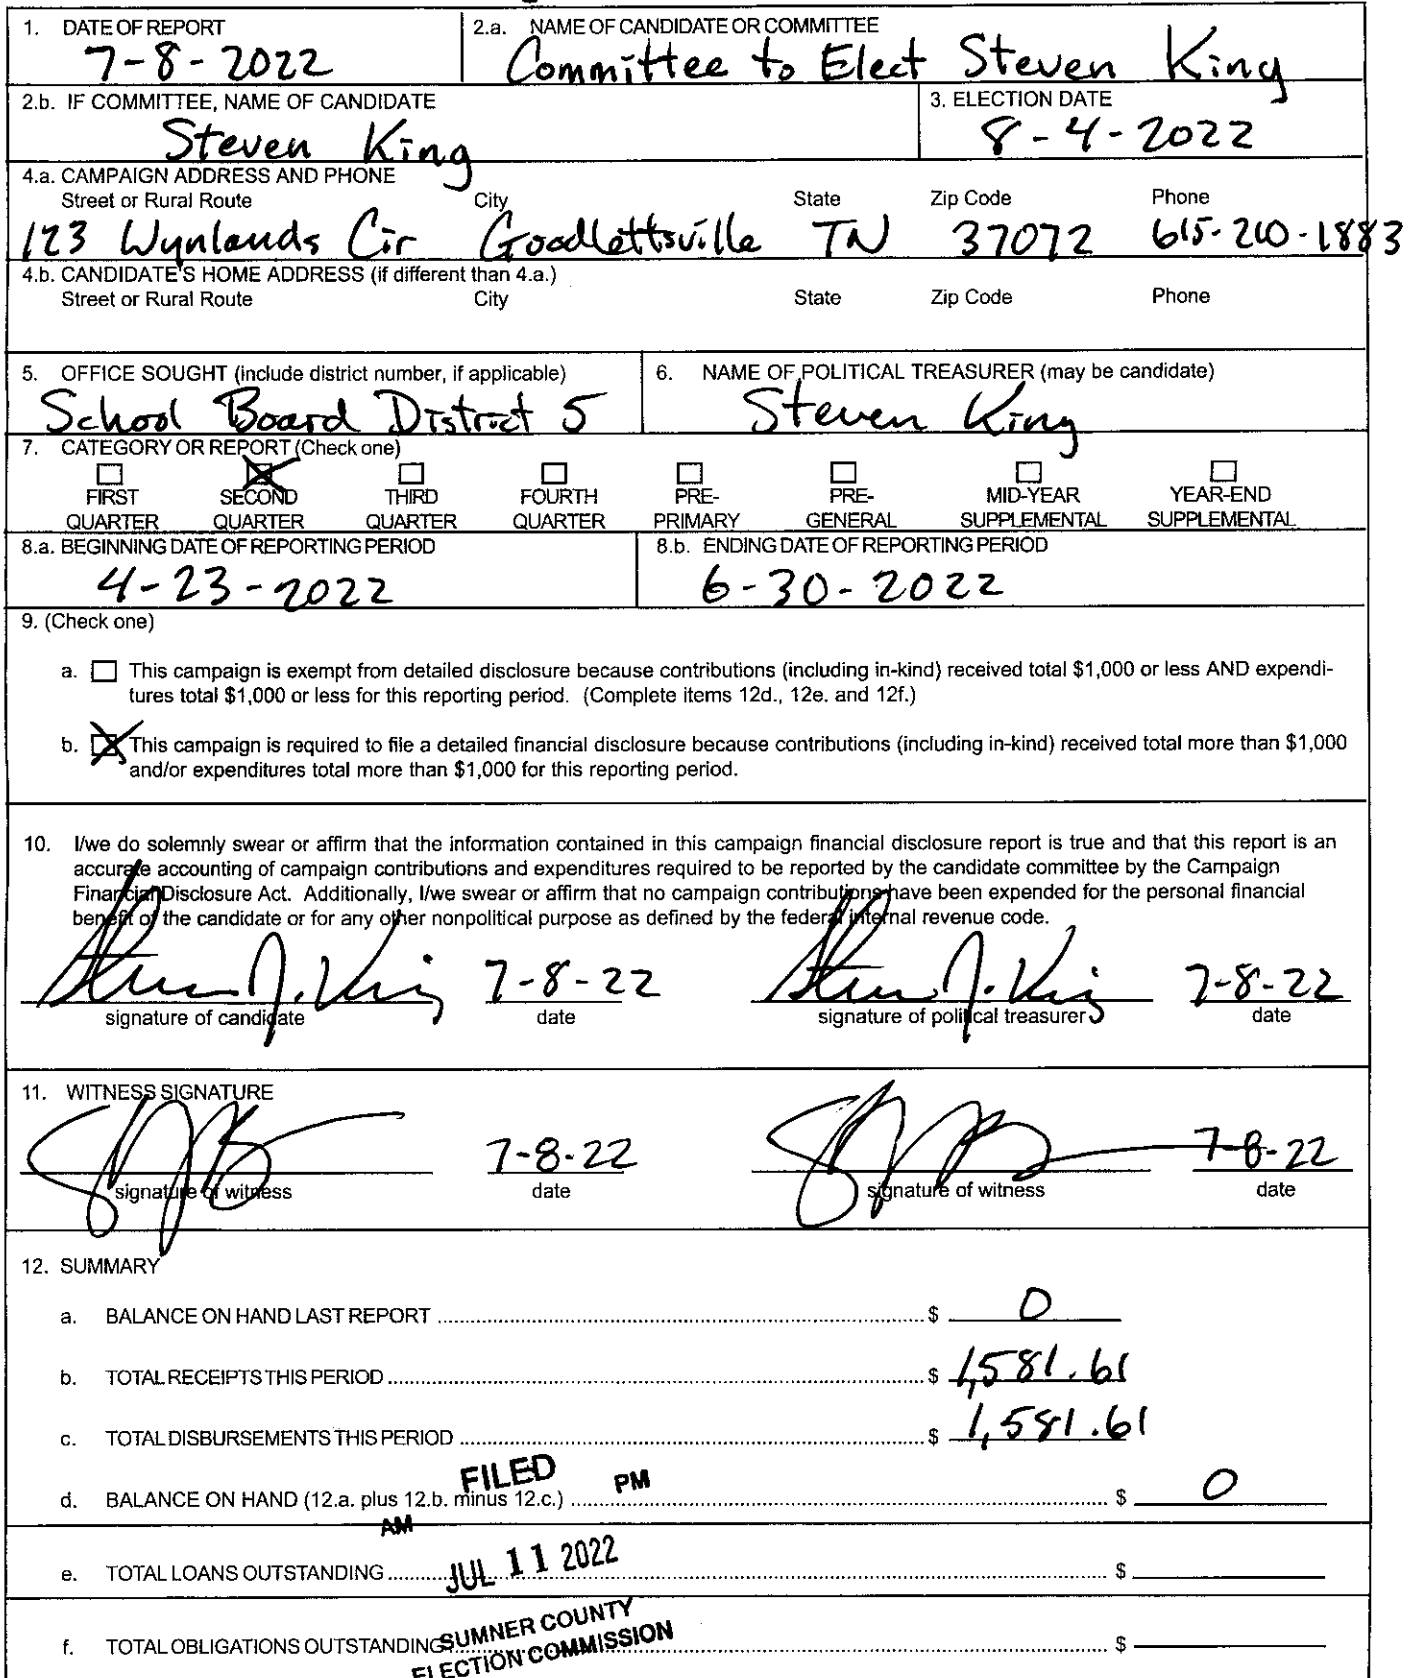 1. DATE OF REPORT
7-8-2022
2.a. NAME OF CANDIDATE OR COMMITTEE
Committee to Elect Steven King
2.b. IF COMMITTEE, NAME OF CANDIDATE
Steven King
3. ELECTION DATE
8-4-2022
4.a. CAMPAIGN ADDRESS AND PHONE
Street or Rural Route City State Zip Code Phone
123 Wynlands Cir Goodlettsville TN 37072 615-210-1883
4.b. CANDIDATE'S HOME ADDRESS (if different than 4.a.)
Street or Rural Route City State Zip Code Phone
5. OFFICE SOUGHT (include district number, if applicable)
School Board District 5
6. NAME OF POLITICAL TREASURER (may be candidate)
Steven King
7. CATEGORY OR REPORT (Check one)
FIRST QUARTER
SECOND QUARTER
THIRD QUARTER
FOURTH QUARTER
PRE-PRIMARY
PRE-GENERAL
MID-YEAR SUPPLEMENTAL
YEAR-END SUPPLEMENTAL
8.a. BEGINNING DATE OF REPORTING PERIOD
4-23-2022
8.b. ENDING DATE OF REPORTING PERIOD
6-30-2022
9. (Check one)
a. This campaign is exempt from detailed disclosure because contributions (including in-kind) received total $1,000 or less AND expendi-
tures total $1,000 or less for this reporting period. (Complete items 12d., 12e. and 12f.)
b. This campaign is required to file a detailed financial disclosure because contributions (including in-kind) received total more than $1,000
and/or expenditures total more than $1,000 for this reporting period.
10. I/we do solemnly swear or affirm that the information contained in this campaign financial disclosure report is true and that this report is an
accurate accounting of campaign contributions and expenditures required to be reported by the candidate committee by the Campaign
Financial Disclosure Act. Additionally, I/we swear or affirm that no campaign contributions have been expended for the personal financial
benefit of the candidate or for any other nonpolitical purpose as defined by the federal internal revenue code.
Steven J. King 7-8-22 Steven J. King 7-8-22
signature of candidate date signature of political treasurer date
11. WITNESS SIGNATURE
7-8-22 7-8-22
signature of witness date signature of witness date
12. SUMMARY
a. BALANCE ON HAND LAST REPORT $ 0
b. TOTAL RECEIPTS THIS PERIOD $ 1,581.61
c. TOTAL DISBURSEMENTS THIS PERIOD $ 1,581.61
FILED PM
d. BALANCE ON HAND (12.a. plus 12.b. minus 12.c.) $ 0
AM
e. TOTAL LOANS OUTSTANDING $
JUL 11 2022
f. TOTAL OBLIGATIONS OUTSTANDING $
SUMNER COUNTY
ELECTION COMMISSION